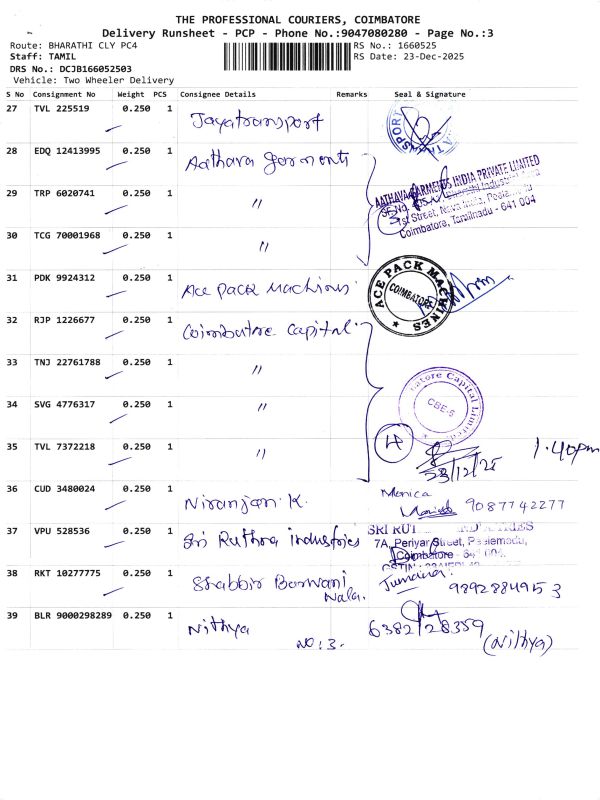 THE PROFESSIONAL COURIERS, COIMBATORE
Delivery Runsheet - PCP - Phone No.:9047080280 - Page No.:3
Route: BHARATHI CLY PC4 RS No.: 1660525
Staff: TAMIL RS Date: 23-Dec-2025
DRS No.: DCJB166052503
Vehicle: Two Wheeler Delivery
S No Consignment No Weight PCS Consignee Details Remarks Seal & Signature
27 TVL 225519 0.250 1 Jayatransport
28 EDQ 12413995 0.250 1 Aathava Garments
AATHAVA GARMENTS INDIA PRIVATE LIMITED
29 TRP 6020741 0.250 1 "
3
1st Street, Nava India, Peelamedu
Coimbatore, Tamilnadu - 641 004
30 TCG 70001968 0.250 1 "
31 PDK 9924312 0.250 1 Ace Pack Machines
ACE PACK MACHINES
COIMBATORE
32 RJP 1226677 0.250 1 Coimbatore Capital
33 TNJ 22761788 0.250 1 "
34 SVG 4776317 0.250 1 "
Coimbatore Capital Limited
CBE-5
35 TVL 7372218 0.250 1 " 4 1.40pm
23/12/25
36 CUD 3480024 0.250 1 Niranjan K. Monica
9087742277
37 VPU 528536 0.250 1 Sri Ruthra industries
7A, Periyar Street, Peelamedu,
Coimbatore - 641 004.
38 RKT 10277775 0.250 1 Shabbir Barwani
Wala.
9892884953
39 BLR 9000298289 0.250 1 Nithya 6382728359
NO: 3. (Nithya)